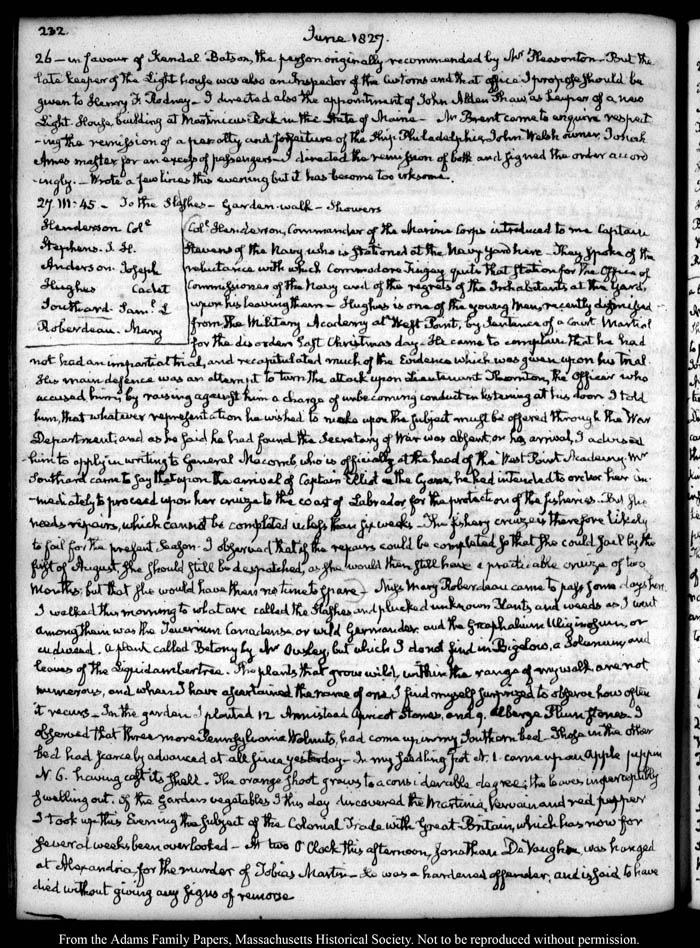 232.
June 1827.
26 — in favour of Kendal Batson, the person originally recommended by Mr Pleasonton. But the
late keeper of the Light house was also an Inspector of the Customs and that office I propose should be
given to Henry F. Rodney. I directed also the appointment of John Alden Shaw as keeper of a new
Light House, building at Martinicus Rock in the State of Maine — Mr Brent came to enquire respect
-ing the remission of a penalty and forfeiture of the Ship Philadelphia, John Welsh owner, Jonah
Ames master for an excess of passengers — I directed the remission of both and signed the order accord
-ingly. — Wrote a few lines this evening but it has become too irksome.
27. III: 45 — To the Slashes — Garden-walk — Showers
Henderson Col.e
Stephens. J. H.
Anderson Joseph
Hughes Cadet
Southard. Sam.l L
Roberdeau. Mary
Col.e Henderson, Commander of the Marine Corps introduced to me Captain
Stevens of the Navy who is stationed at the Navy Yard here — They spoke of the
reluctance with which Commodore Tingey quits that Station for the Office of
Commissioner of the Navy and of the regrets of the Inhabitants at the Yard,
upon his leaving them — Hughes is one of the young Men, recently dismissed
from the Military Academy at West Point, by Sentence of a Court Martial
for the disorders last Christmas day. He came to complain that he had
not had an impartial trial, and recapitulated much of the Evidence which was given upon his trial.
His main defence was an attempt to turn the attack upon Lieutenant Thornton, the Officer who
accused him, by raising against him a charge of unbecoming conduct in listening at his door. I told
him, that whatever representation he wished to make upon the subject must be offered through the War
Department; and as he said he had found the Secretary of War was absent on his arrival, I advised
him to apply in writing to General Macomb who is officially at the head of the West Point Academy. Mr
Southard came to say that upon the arrival of Captain Elliot in the Cyane, he had intended to order her im-
-mediately to proceed upon her cruize to the coast of Labrador for the protection of the fisheries. But she
needs repairs, which cannot be completed in less than six weeks — The fishery cruize is therefore likely
to fail for the present Season. I observed that if the repairs could be completed so that she could sail by the
first of August she should still be despatched, as she would then still have a practicable cruize of two
Months; but that she would have then no time to spare — Miss Mary Roberdeau came to pass some days here.
I walked this morning to what are called the Slashes and plucked unknown Plants and weeds as I went
among them was the Teucrium Canadense, or wild Germander and the Gnaphalium Uliginosum, or
cudweed. a plant called Betony by Mr Ousley, but which I do not find in Bigelow, a Solanum, and
leaves of the Liquidambertree. The plants that grow wild, within the range of my walk are not
numerous, and when I have ascertained the name of one I find myself surprized to observe how often
it recurs — In the garden I planted 12 Armistead apricot Stones, and 9. Alberge Plum Stones. I
observed that three more Pennsylvania Walnuts, had come up in my Southern bed — Those in the other
bed had scarcely advanced at all since yesterday — In my seedling pot N. 1. came up an Apple pippin
N. 6. having cast its shell — The orange shoot grows to a considerable degree; the leaves imperceptibly
swelling out. Of the Garden vegetables I this day discovered the Martinia, Vervain and red pepper
I took up this Evening the subject of the Colonial Trade with Great-Britain, which has now for
several weeks been overlooked — At two O'Clock this afternoon, Jonathan De Vaughn was hanged
at Alexandria, for the murder of Tobias Martin — He was a hardened offender, and is said to have
died without giving any signs of remorse
From the Adams Family Papers, Massachusetts Historical Society. Not to be reproduced without permission.